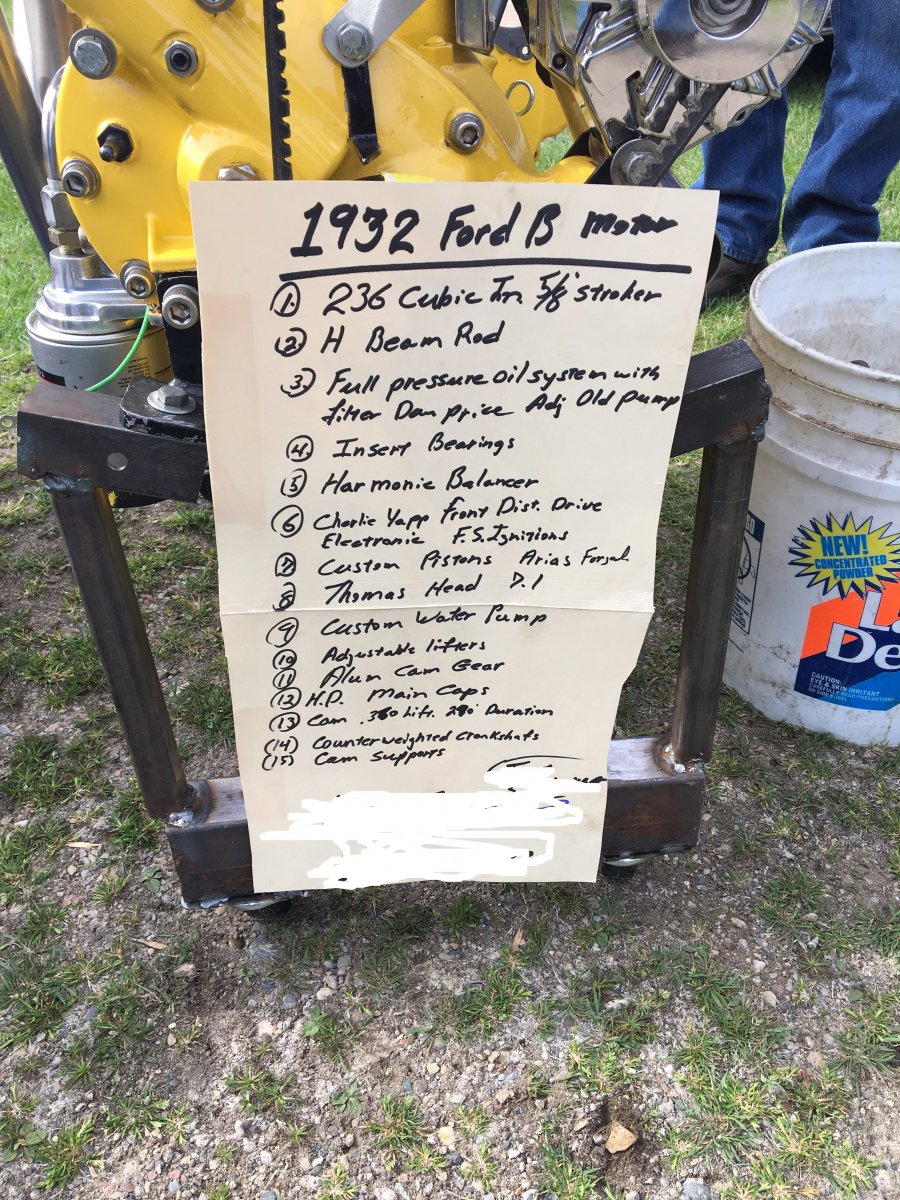 1932 Ford B Motor
① 236 Cubic In 5/8" Stroker
② H Beam Rod
③ Full pressure oil system with
filter Dan price Adj Old Pump
④ Insert Bearings
⑤ Harmonic Balancer
⑥ Charlie Yapp Front Dist. Drive
Electronic F.S. Ignitions
⑦ Custom Pistons Arias Forged
⑧ Thomas Head 7.1
⑨ Custom Water Pump
⑩ Adjustable lifters
⑪ Alum Cam Gear
⑫ H.P. Main Caps
⑬ Cam .360 Lift. 290° Duration
(14) Counterweighted Crankshafts
(15) Cam Supports
NEW!
CONCENTRATED
POWDER
De
CAUTION:
EYE & SKIN IRRITANT